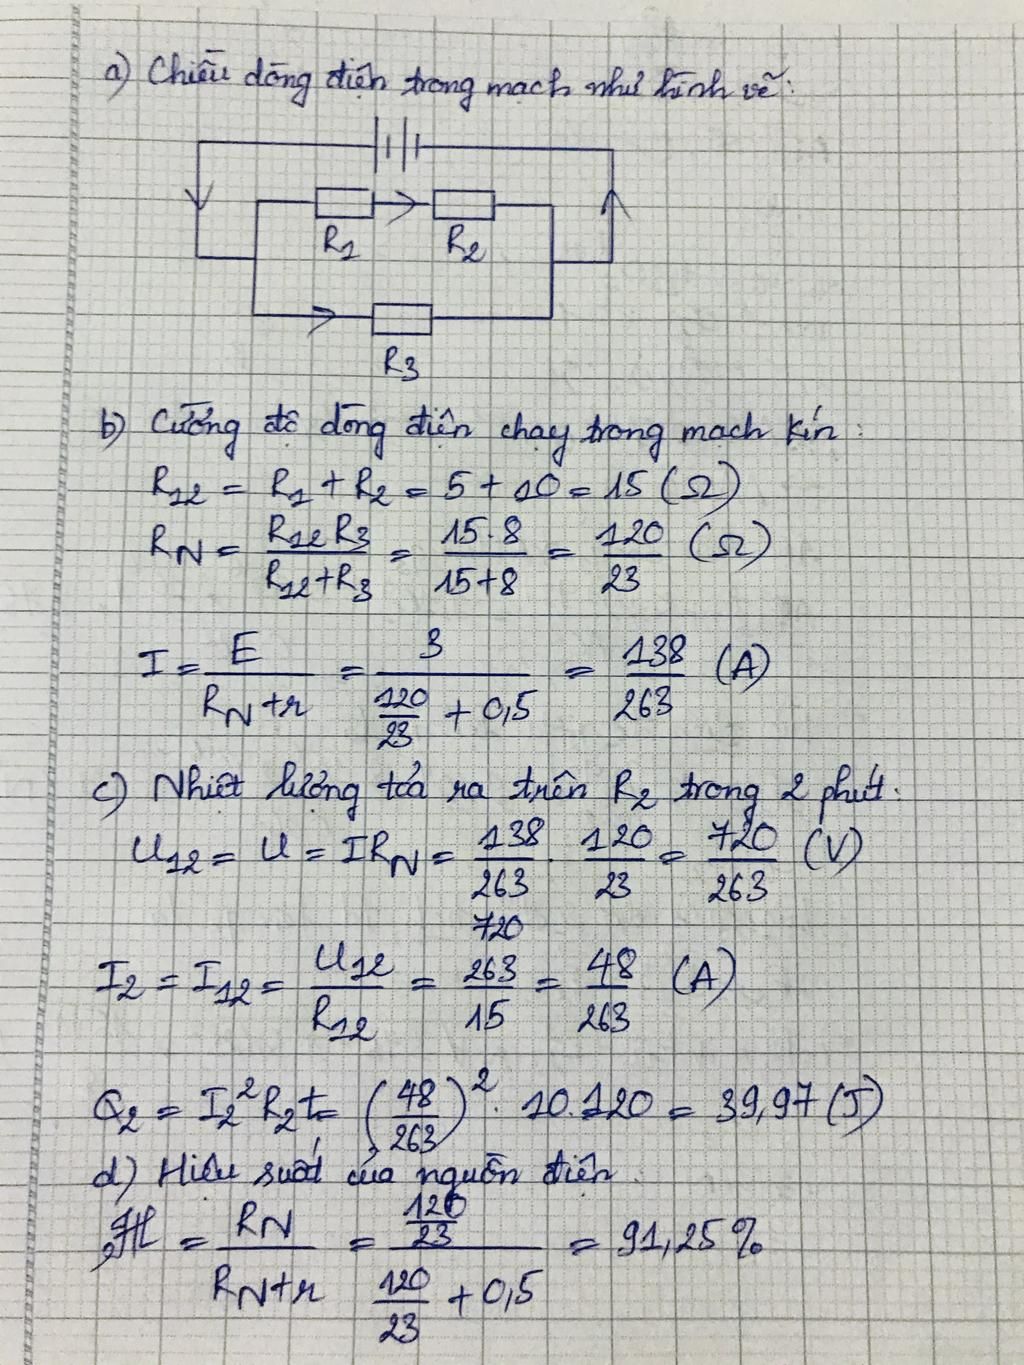 a) Chiều dòng điện trong mạch như hình vẽ:
R1 R2
R3
b) Cường độ dòng điện chạy trong mạch kín:
R12 = R1 + R2 = 5 + 10 = 15 (Ω)
RN = R12 R3 / R12+R3 = 15.8 / 15+8 = 120/23 (Ω)
I = E / RN+r = 3 / 120/23 + 0,5 = 138/263 (A)
c) Nhiệt lượng tỏa ra trên R2 trong 2 phút:
U12 = U = IRN = 138/263 . 120/23 = 720/263 (V)
I2 = I12 = U12/R12 = 720/263 / 15 = 48/263 (A)
Q2 = I2² R2t = (48/263)² . 10.120 = 39,97 (J)
d) Hiệu suất của nguồn điện.
H = RN / RN+r = 120/23 / 120/23 + 0,5 = 91,25 %